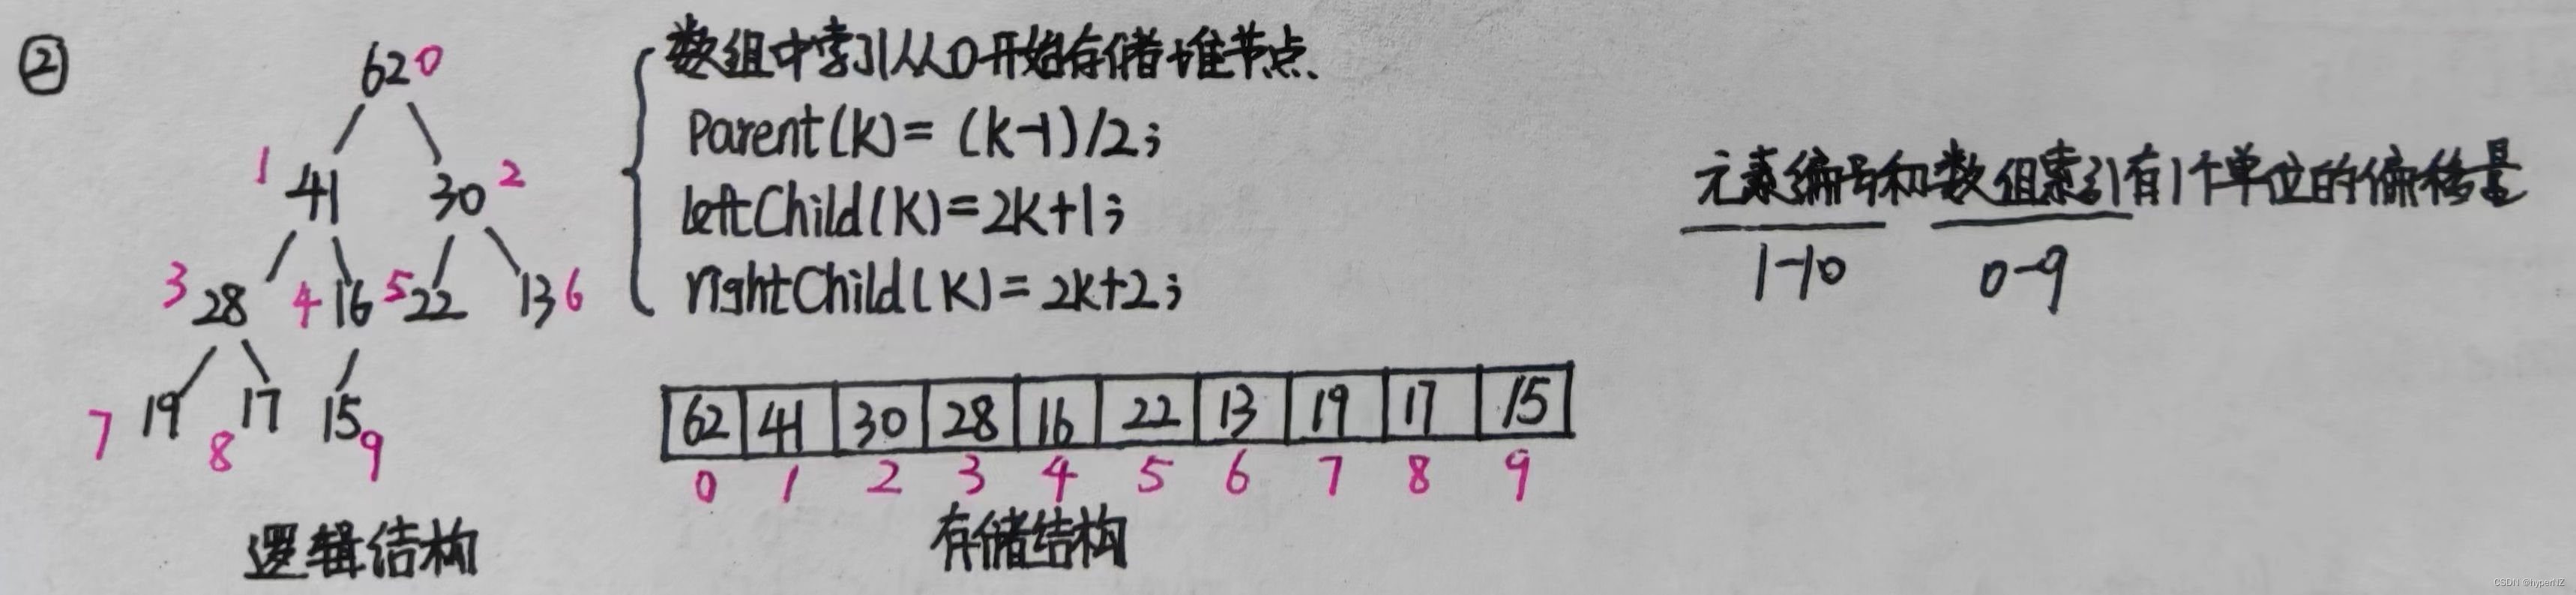 ②
620
数组中索引从0开始存储堆节点.
Parent(k)= (k-1)/2;
leftChild(k)=2k+1;
rightChild(k)=2k+2;
元素编号和数组索引有1个单位的偏移量
1-10 0-9
1 41 30 2
3 28 4 16 5 22 13 6
7 19 8 17 15 9
62 41 30 28 16 22 13 19 17 15
0 1 2 3 4 5 6 7 8 9
逻辑结构
存储结构
CSDN @hyperNZ